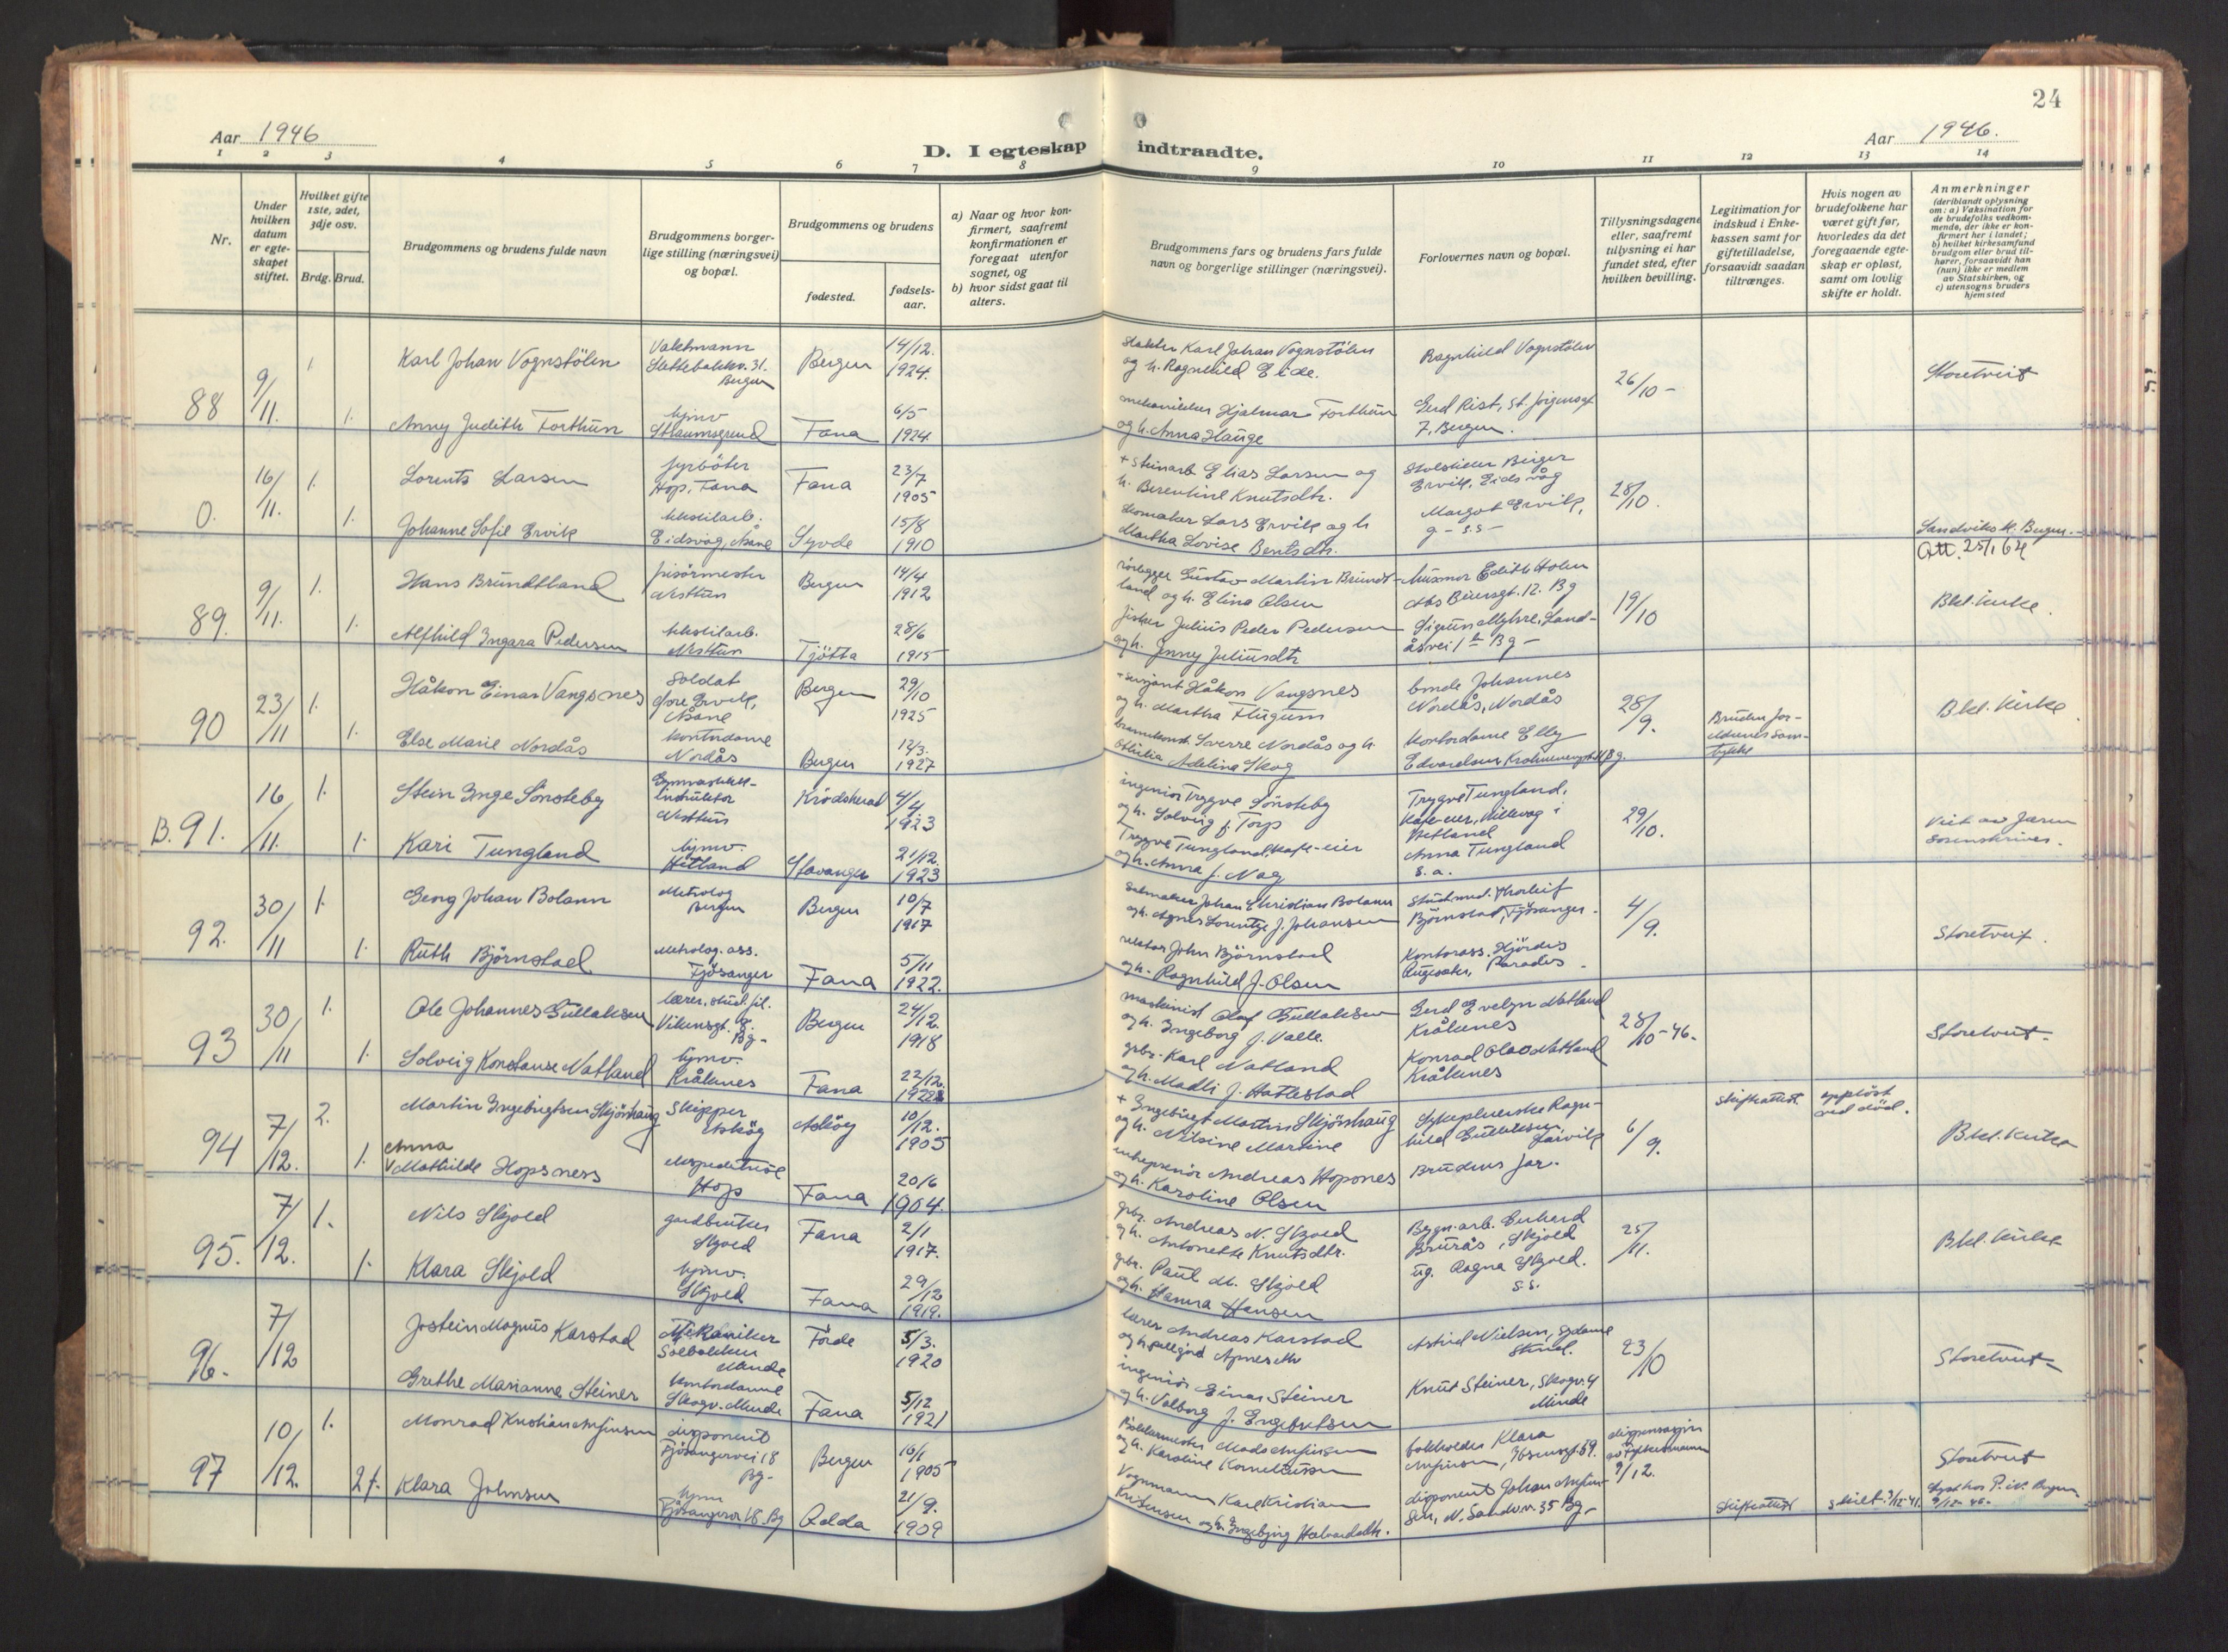 24
Aar 1946
D. I egteskap indtraadte.
Aar 1946.
1 2 3 4 5 6 7 8 9 10 11 12 13 14
Nr.
Under
hvilken
datum
er egte-
skapet
stiftet.
Hvilket gifte
1ste, 2det,
3dje osv.
Brdg. Brud.
Brudgommens og brudens fulde navn
Brudgommens borger-
lige stilling (næringsvei)
og bopæl.
Brudgommens og brudens
fødested.
fødsels-
aar.
a) Naar og hvor kon-
firmert, saafremt
konfirmationen er
foregaat utenfor
sognet, og
b) hvor sidst gaat til
alters.
Brudgommens fars og brudens fars fulde
navn og borgerlige stillinger (næringsvei).
Forlovernes navn og bopæl.
Tillysningsdagene
eller, saafremt
tillysning ei har
fundet sted, efter
hvilken bevilling.
Legitimation for
indskud i Enke-
kassen samt for
giftetilladelse,
forsaavidt saadan
tiltrænges.
Hvis nogen av
brudefolkene har
været gift før,
hvorledes da det
foregaaende egte-
skap er opløst,
samt om lovlig
skifte er holdt.
Anmerkninger
(deriblandt oplysning
om: a) Vaksination for
de brudefolks vedkom-
mende, der ikke er kon-
firmert her i landet;
b) hvilket kirkesamfund
brudgom eller brud til-
hører, forsaavidt han
(hun) ikke er medlem
av Statskirken, og
c) utensogns bruders
hjemsted
88 9/11. 1. Karl Johan Vognstölen
Vaktmann
Slettebakkv. 31.
Bergen
Bergen 14/12. 1924.
Karl Johan Vognstölen
og h. Ragnhild Eide.
Ragnhild Vognstölen
26/10 -
Storetveit
1. Anny Judith Forthun
hjmv
Straumsgrend
Fana 6/5 1924.
Hjalmar Forthun
og h. Anna Hauge
Gerd Rist, St. Jörgensgt
7, Bergen.
0. 16/11. 1. Lorents Larsen
fyrböter
Hop, Fana
Fana 23/7 1905
+ Steinarb Elias Larsen og
h. Berentine Knutsdtr.
Birger
Ervik, Eidsvåg
28/10.
1. Johanne Sofie Ervik
tekstilarb.
Eidsvåg, Åsane
Syvde 15/8 1910
Lars Ervik og h
Martha Lovise Bentsdtr.
Margot Ervik,
g - s.s -
Sandviks k. Bergen.
Att. 25/1 64
89. 9/11. 1. Hans Brundtland
frisörmester
Nesttun
Bergen 14/4 1912
rörlegger Gustav Martin Brundt-
land og h. Elina Olsen
husmor Edith Holen
12. Bg
19/10
Bkl. kirke.
1. Alfhild Ingara Pedersen
tekstilarb.
Nesttun
Tjötta 28/6 1915
fisker Julius Peder Pedersen
og h. Jenny Juliusdtr
Sigrun Myhre, Land-
åsvei 1 Bg -
90 23/11 1. Håkon Einar Vangsnes
Soldat
Åsane
Bergen 29/10 1925
Håkon Vangsnes
og h. Martha Flugum
bonde Johannes
Nordås, Nordås
28/9.
Bkl. kirke.
1. Else Marie Nordås
kontordame
Nordås
Bergen 12/3. 1927
Sverre Nordås og h.
Othilia Adelina Skog
kontordame Elly
Edvardsen Bg.
Brudens for-
eldrenes sam-
tykke
B. 91. 16/11. 1. Stein Inge Sönsteby
Gymnastikk-
instruktör
Nesttun
Krödsherad 4/4. 1923
ingeniör Trygve Sönsteby
og h. Solveig f. Torp
Trygve Tungland,
kafe-eier, Hillevåg i
Hetland
29/10.
Viet av Jæren
Sorenskriver.
1. Kari Tungland
hjmv.
Hetland
Stavanger 21/12. 1923
Trygve Tungland, kafe-eier
og h. Anna f. Nag
Anna Tungland
s. a.
92. 30/11 1. Georg Johan Bolann
Metrolog
Bergen
Bergen 10/7 1917
Johan Christian Bolann
og h. Agnes Lorentze f. Johansen
Stud. med. Thorleif
Björnstad, Fjösanger.
4/9.
Storetveit.
1. Ruth Björnstad
Metrolog. ass.
Fjösanger
Fana 5/11 1922.
rektor John Björnstad
og h. Ragnhild f. Olsen
Kontorass. Hjördis
Paradis.
93 30/11 1. Ole Johannes Gullaksen
lærer, stud. fil.
Vikensgt. 8.
Bg -
Bergen 24/12. 1918
maskinist Olaf Gullaksen
og h. Ingeborg f. Valle.
Gerd Evelyn Natland
Kråknes
28/10 - 46.
Storetveit.
1. Solveig Konstanse Natland
hjmv.
Kråknes
Fana 22/12. 1922
gbr. Karl Natland
og h. Madli f. Hatlestad
Konrad Olav Natland
Kråknes
94 7/12. 2. Martin Ingebrigtsen Skjörshaug
Skipper
Askøy
Askøy 10/12. 1905
+ Ingebrigt Martin Skjörshaug
og h. Nilsine Martine
Sykepleierske Ragn-
hild Gullaksen,
6/9.
Skifteattest.
oppløst
ved död.
Bkl. kirke
1. Anna
v Mathilde Hopsness
ekspeditrise
Hop
Fana 20/6 1904.
entreprenör Andreas Hopsnes
og h. Karoline Olsen
Brudens far.
95. 7/12. 1. Nils Skjold
gardbruker
Skjold
Fana 2/1 1917.
gbr. Andreas N. Skjold
og h. Antonette Knutsdtr.
Bygn. arb. Gerhard
Brurås, Skjold
25/11.
Bkl. kirke
1. Klara Skjold
hjmv.
Skjold
Fana 29/12 1919.
gbr. Paul M. Skjold
og h. Hanna Hansen
ug. Ragna Skjold.
s.s.
96. 7/12 Jostein Magnus Karstad
Mekaniker
Solbakken
Minde
Förde 5/3. 1920
lærer Andreas Karstad
og h.
Astrid Nielsen, sydame
23/10
Storetveit
Grethe Marianne Steiner
kontordame
Skogv. Minde
Fana 5/12 1921
ingeniör Einar Steiner
og h. Valborg f. Engebretsen
Knut Steiner, Skogv. 4
Minde
97 10/12. 1. Monrad Kristian Amfinsen
disponent
Fjösangervei 18
Bg -
Bergen 16/1 1905
Mads Amfinsen
og h. Karoline Korneliussen
bokholder Klara
Amfinsen, Ibsensgt. 59.
dispensasjon
av Fylkesmannen
9/12.
Storetveit
2 f. Klara Johnsen
hjmv
Fjösangervei 18. Bg
Odda 21/9. 1909
Vognmann Karl Kristian
Kristensen og h. Ingebjörg Halvardsdtr.
disponent Johan Amfin-
sen, N. Sandv.v. 35 Bg -
Skifteattest
skilt.